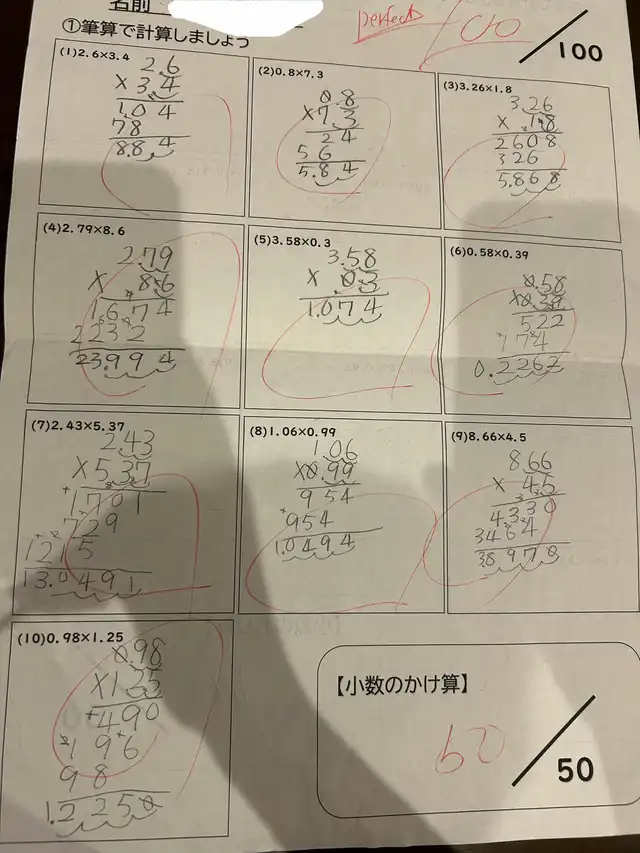 名前
perfect 100
/100
①筆算で計算しましょう
(1)2.6×3.4
2.6
×3.4
1.04
78
8.84
(2)0.8×7.3
0.8
×7.3
24
56
5.84
(3)3.26×1.8
3.26
× 1.8
2608
326
5.868
(4)2.79×8.6
2.79
× 8.6
1674
2232
23.994
(5)3.58×0.3
3.58
× 0.3
1.074
(6)0.58×0.39
0.58
×0.39
522
174
0.2262
(7)2.43×5.37
2.43
×5.37
1701
729
1215
13.0491
(8)1.06×0.99
1.06
×0.99
954
954
1.0494
(9)8.66×4.5
8.66
× 4.5
4330
3464
38.970
(10)0.98×1.25
0.98
×1.25
490
196
98
1.2250
【小数のかけ算】
50
/50